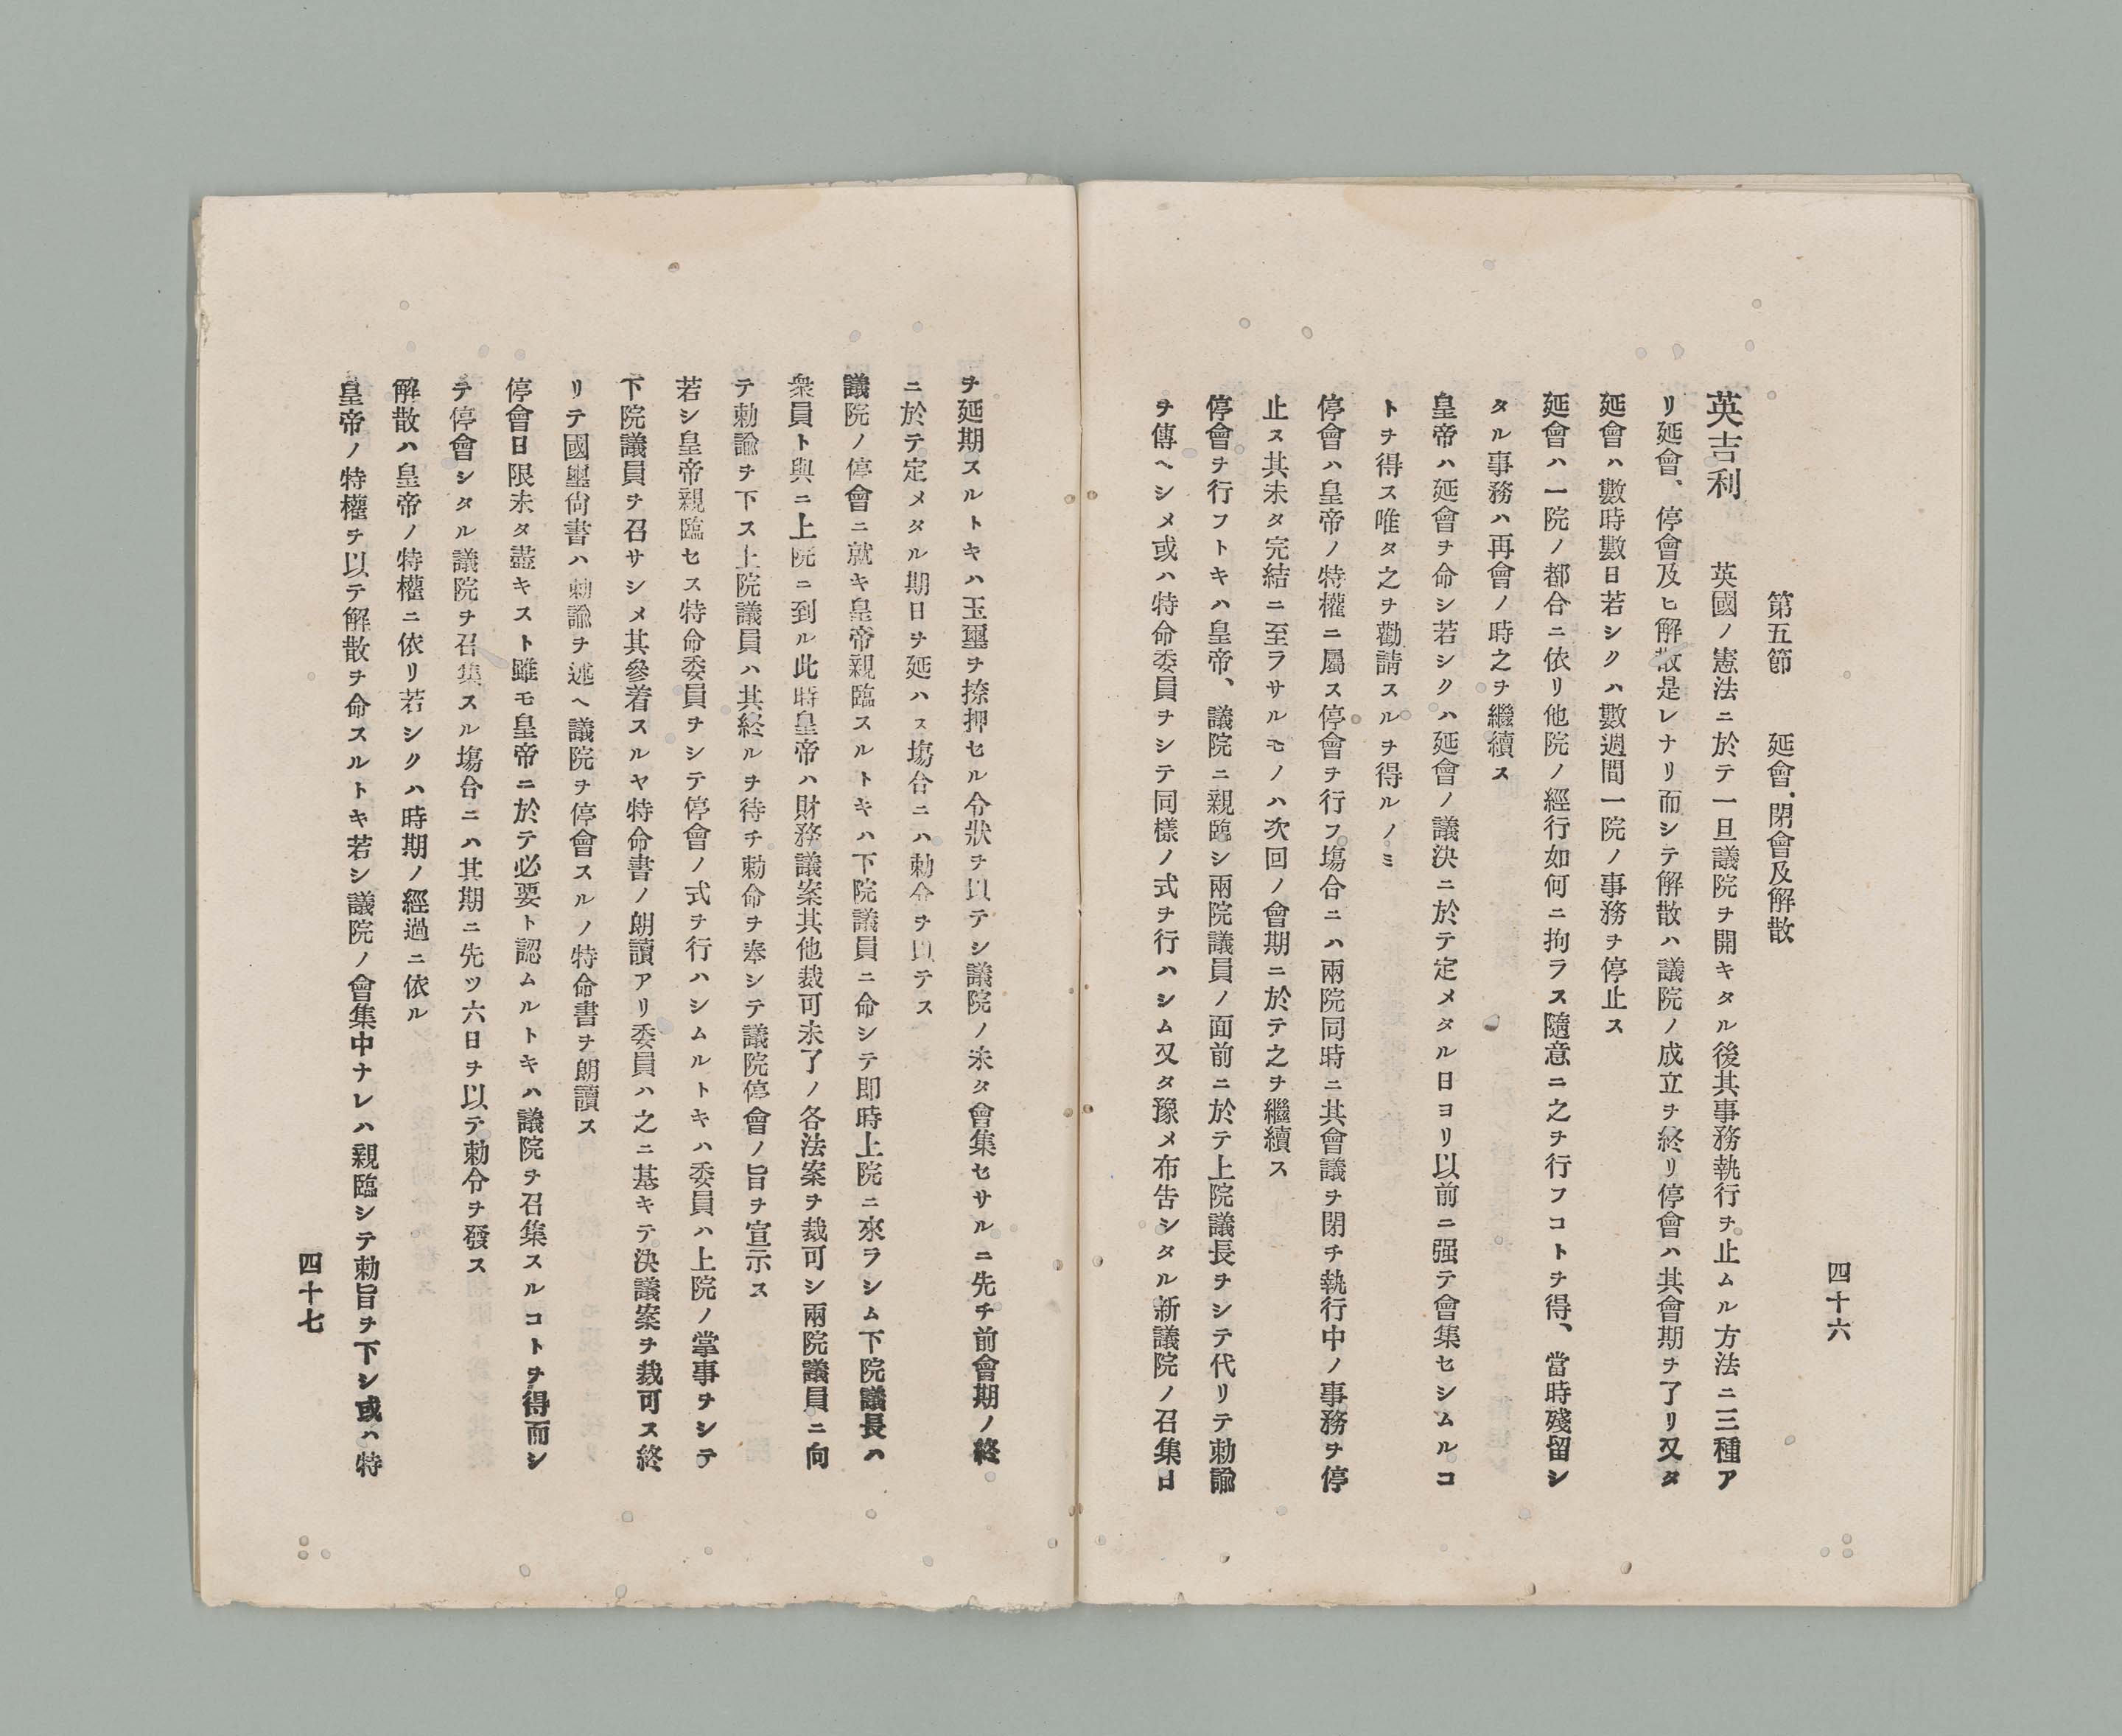 四十六
第五節　延會、閉會及解散
英吉利　英國ノ憲法ニ於テ一旦議院ヲ開キタル後其事務執行ヲ止ムル方法ニ三種ア
リ延會、停會及ヒ解散是レナリ而シテ解散ハ議院ノ成立ヲ終リ停會ハ其會期ヲ了リ又タ
延會ハ數時數日若シクハ數週間一院ノ事務ヲ停止ス
延會ハ一院ノ都合ニ依リ他院ノ經行如何ニ拘ラス隨意ニ之ヲ行フコトヲ得、當時殘留シ
タル事務ハ再會ノ時之ヲ繼續ス
皇帝ハ延會ヲ命シ若シクハ延會ノ議決ニ於テ定メタル日ヨリ以前ニ强テ會集セシムルコ
トヲ得ス唯タ之ヲ勸請スルヲ得ルノミ
停會ハ皇帝ノ特權ニ屬ス停會ヲ行フ塲合ニハ兩院同時ニ其會議ヲ閉チ執行中ノ事務ヲ停
止ス其未タ完結ニ至ラサルモノハ次回ノ會期ニ於テ之ヲ繼續ス
停會ヲ行フトキハ皇帝、議院ニ親臨シ兩院議員ノ面前ニ於テ上院議長ヲシテ代リテ勅諭
ヲ傳ヘシメ或ハ特命委員ヲシテ同樣ノ式ヲ行ハシム又タ豫メ布告シタル新議院ノ召集日
ヲ延期スルトキハ玉璽ヲ捺押セル令狀ヲ以テシ議院ノ未タ會集セサルニ先チ前會期ノ終
ニ於テ定メタル期日ヲ延ハス塲合ニハ勅令ヲ以テス
議院ノ停會ニ就キ皇帝親臨スルトキハ下院議員ニ命シテ即時上院ニ來ラシム下院議長ハ
衆員ト與ニ上院ニ到ル此時皇帝ハ財務議案其他裁可未了ノ各法案ヲ裁可シ兩院議員ニ向
テ勅諭ヲ下ス上院議員ハ其終ルヲ待チ勅命ヲ奉シテ議院停會ノ旨ヲ宣示ス
若シ皇帝親臨セス特命委員ヲシテ停會ノ式ヲ行ハシムルトキハ委員ハ上院ノ掌事ヲシテ
下院議員ヲ召サシメ其參着スルヤ特命書ノ朗讀アリ委員ハ之ニ基キテ決議案ヲ裁可ス終
リテ國璽尙書ハ勅諭ヲ述ヘ議院ヲ停會スルノ特命書ヲ朗讀ス
停會日限未タ盡キスト雖モ皇帝ニ於テ必要ト認ムルトキハ議院ヲ召集スルコトヲ得而シ
テ停會シタル議院ヲ召集スル塲合ニハ其期ニ先ツ六日ヲ以テ勅令ヲ發ス
解散ハ皇帝ノ特權ニ依リ若シクハ時期ノ經過ニ依ル
皇帝ノ特權ヲ以テ解散ヲ命スルトキ若シ議院ノ會集中ナレハ親臨シテ勅旨ヲ下シ或ハ特
四十七